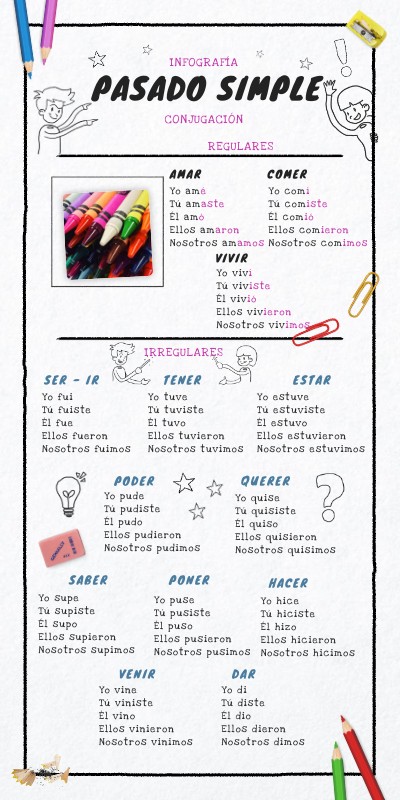 INFOGRAFÍA
PASADO SIMPLE
CONJUGACIÓN
REGULARES
AMAR
Yo amé
Tú amaste
Él amó
Ellos amaron
Nosotros amamos
COMER
Yo comí
Tú comiste
Él comió
Ellos comieron
Nosotros comimos
VIVIR
Yo viví
Tú viviste
Él vivió
Ellos vivieron
Nosotros vivimos
IRREGULARES
SER - IR
Yo fui
Tú fuiste
Él fue
Ellos fueron
Nosotros fuimos
TENER
Yo tuve
Tú tuviste
Él tuvo
Ellos tuvieron
Nosotros tuvimos
ESTAR
Yo estuve
Tú estuviste
Él estuvo
Ellos estuvieron
Nosotros estuvimos
PODER
Yo pude
Tú pudiste
Él pudo
Ellos pudieron
Nosotros pudimos
QUERER
Yo quise
Tú quisiste
Él quiso
Ellos quisieron
Nosotros quisimos
SABER
Yo supe
Tú supiste
Él supo
Ellos supieron
Nosotros supimos
PONER
Yo puse
Tú pusiste
Él puso
Ellos pusieron
Nosotros pusimos
HACER
Yo hice
Tú hiciste
Él hizo
Ellos hicieron
Nosotros hicimos
VENIR
Yo vine
Tú viniste
Él vino
Ellos vinieron
Nosotros vinimos
DAR
Yo di
Tú diste
Él dio
Ellos dieron
Nosotros dimos